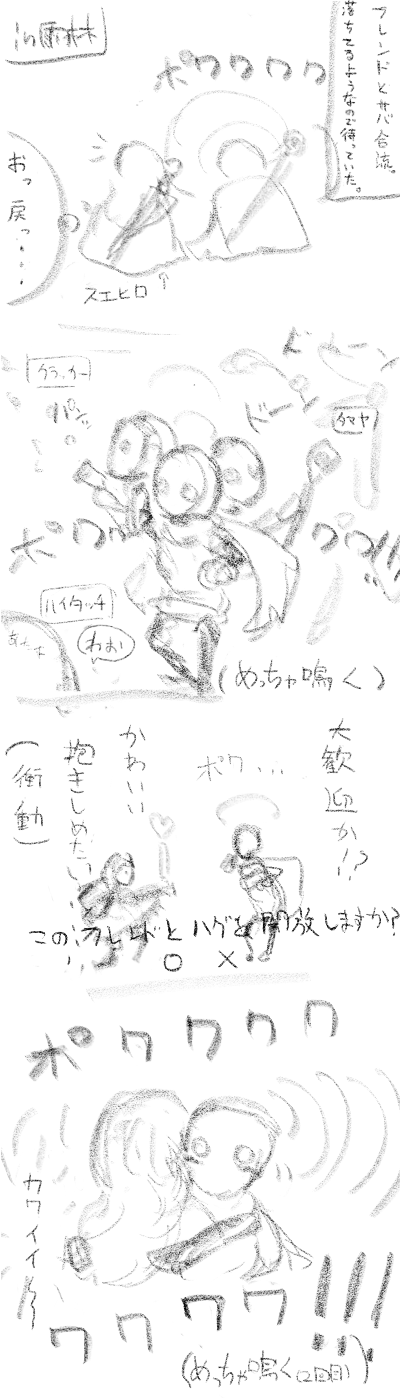 in雨林
フレンドとサバ合流。
落ちてるようなので待っていた。
ポワワワワ
おっ
戻っ・・・
スエヒロ
クラッカー
パンッ
ドーン
ドーン
タマヤ
ポワワ
ワワ!!!
ハイタッチ
わお
(めっちゃ鳴く)
大歓迎か!?
ポワ...
かわいい
抱きしめたい...
(衝動)
このフレンドとハグを開放しますか?
○ ×
ポワワワワ
カワイイ
ワワワワ!!!
(めっちゃ鳴く(2回目))